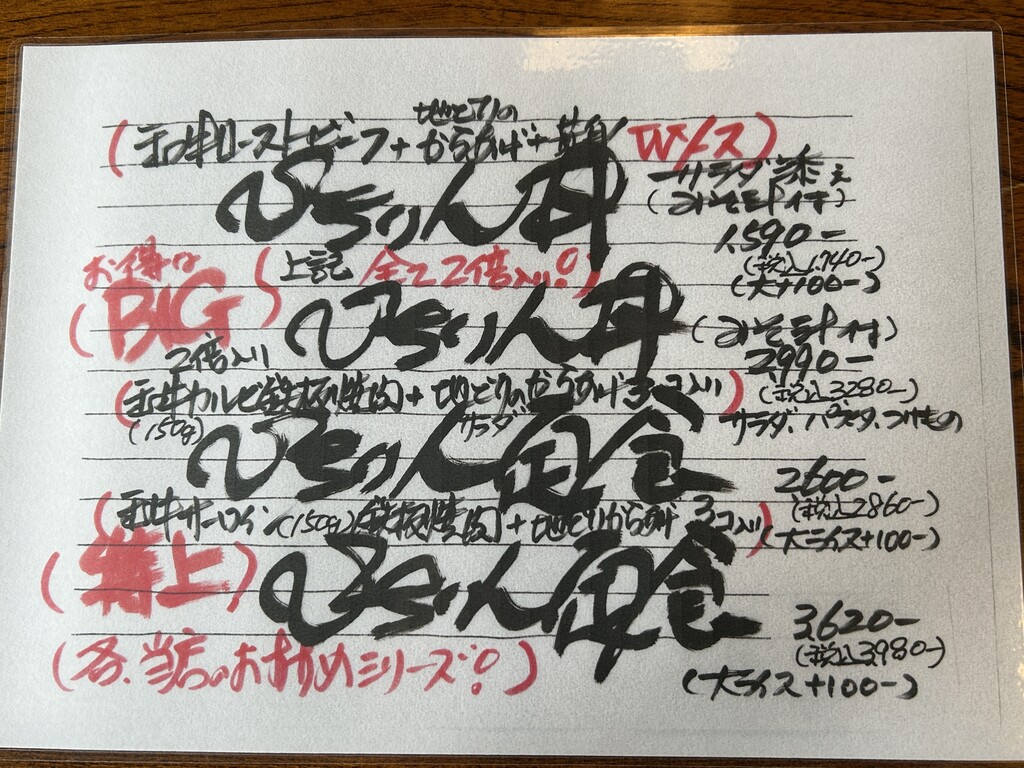 (和牛ローストビーフ+地どりのからあげ+黄身 Wソース)
ひちりん丼
サラダ添え
(みそ汁付)
1,590-
(税込1,740-)
(大+100-)
お得な
(BIG)
(上記 全て2倍入り!)
ひちりん丼
(みそ汁付)
2,990-
(税込3280-)
2倍入り
(和牛カルビ鉄板焼肉+地どりのからあげ3コ入り)
(150g)
サラダ
ひちりん定食
サラダ、パスタ、つけもの
2600-
(税込2860-)
(大ライス+100-)
(和牛サーロイン(150g)鉄板焼肉+地どりからあげ3コ入り)
(特上)
ひちりん定食
3,620-
(税込3,980-)
(大ライス+100-)
(各、当店のおすすめシリーズ!)